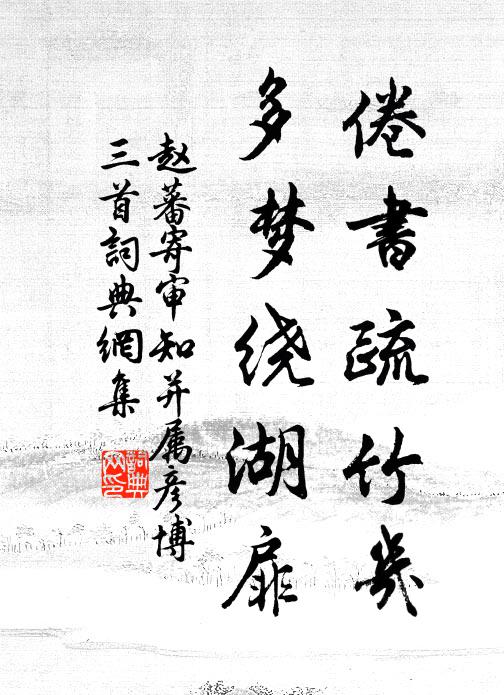 倦書疏竹几
多梦绕湖扉
赵蕃寄审知并属彦博
三首詞典網集